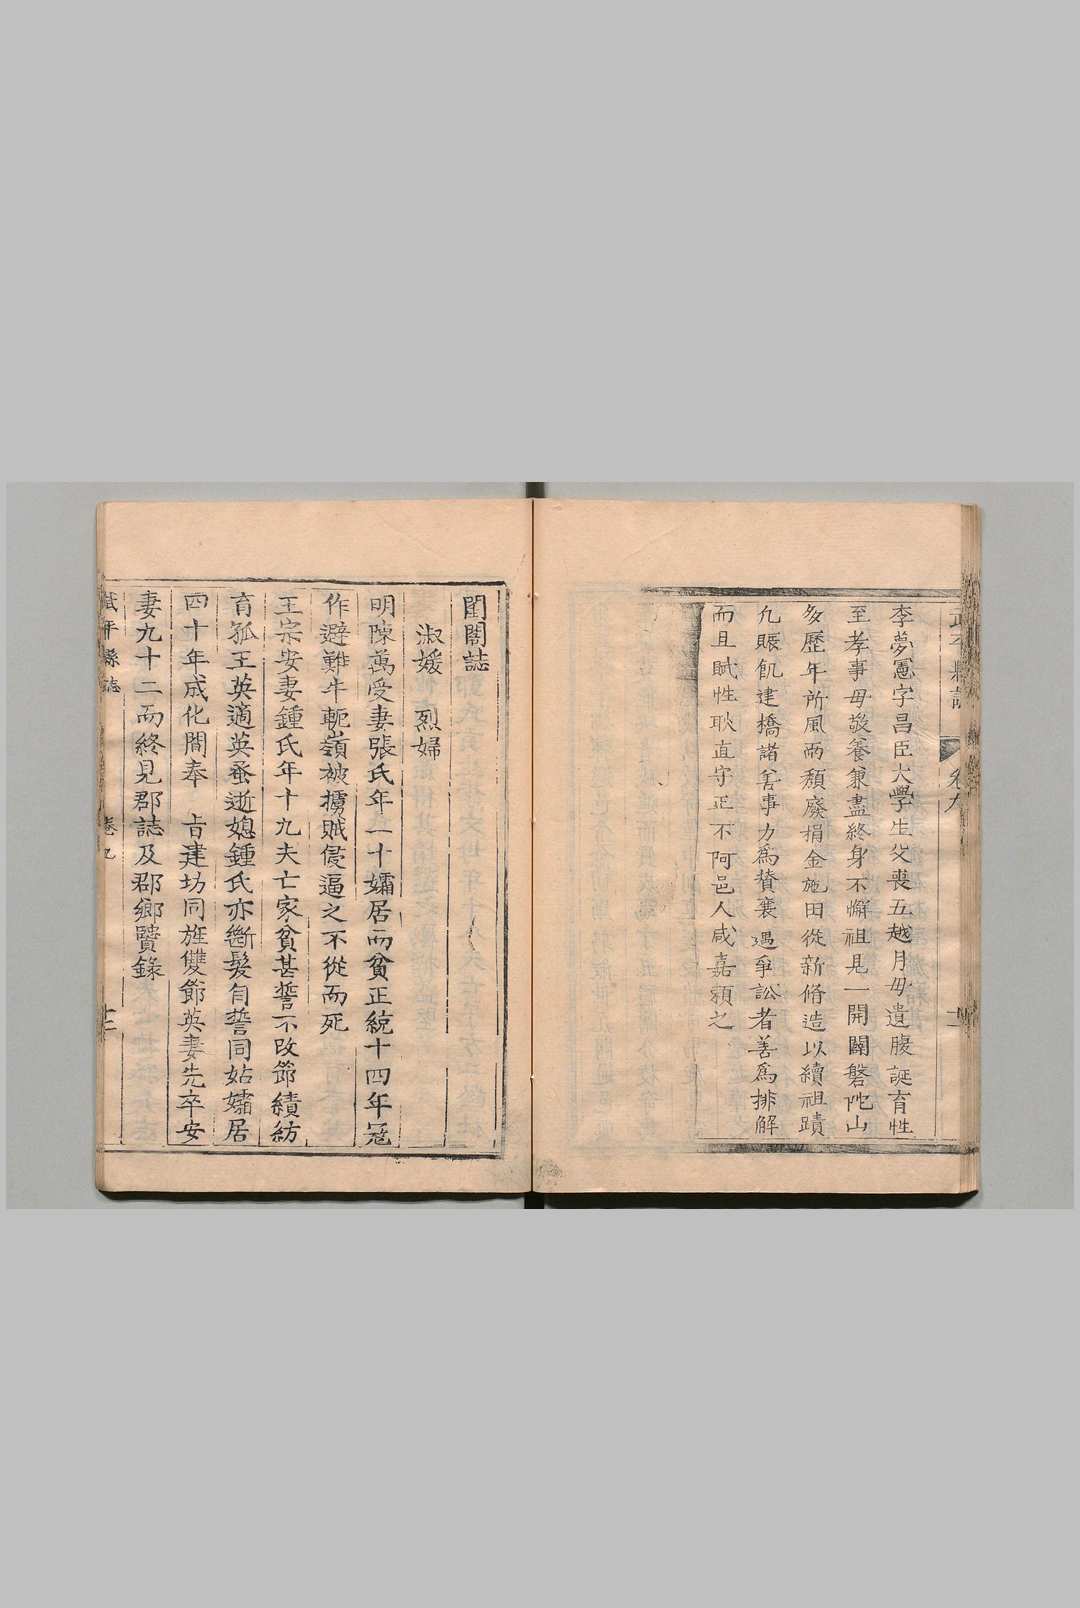 武平縣誌 卷九 十一
李夢憲字昌臣大學生父喪五越月毋遺腹誕育性
至孝事毋敬養兼盡終身不懈祖見一開闢磐陀山
多歷年所風雨頽廢捐金施田從新脩造以續祖蹟
凢賑飢建橋諸善事力為賛襄遇爭訟者善為排解
而且賦性耿直守正不阿邑人咸嘉頖之
閨閤誌
淑媛 烈婦
明陳萬受妻張氏年二十孀居而貧正統十四年冦
作避難牛軛嶺被擄賊侵逼之不從而死
王宗安妻鍾氏年十九夫亡家貧甚誓不改節績紡
育孤王英適英蚤逝媳鍾氏亦斷髮自誓同姑孀居
四十年成化間奉 旨建坊同旌雙節英妻先卒安
妻九十二而終見郡誌及郡鄉賢錄
武平縣誌 卷九 十二